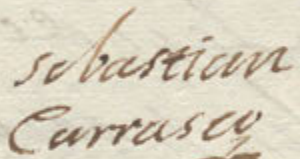 sebastian
Carrasco